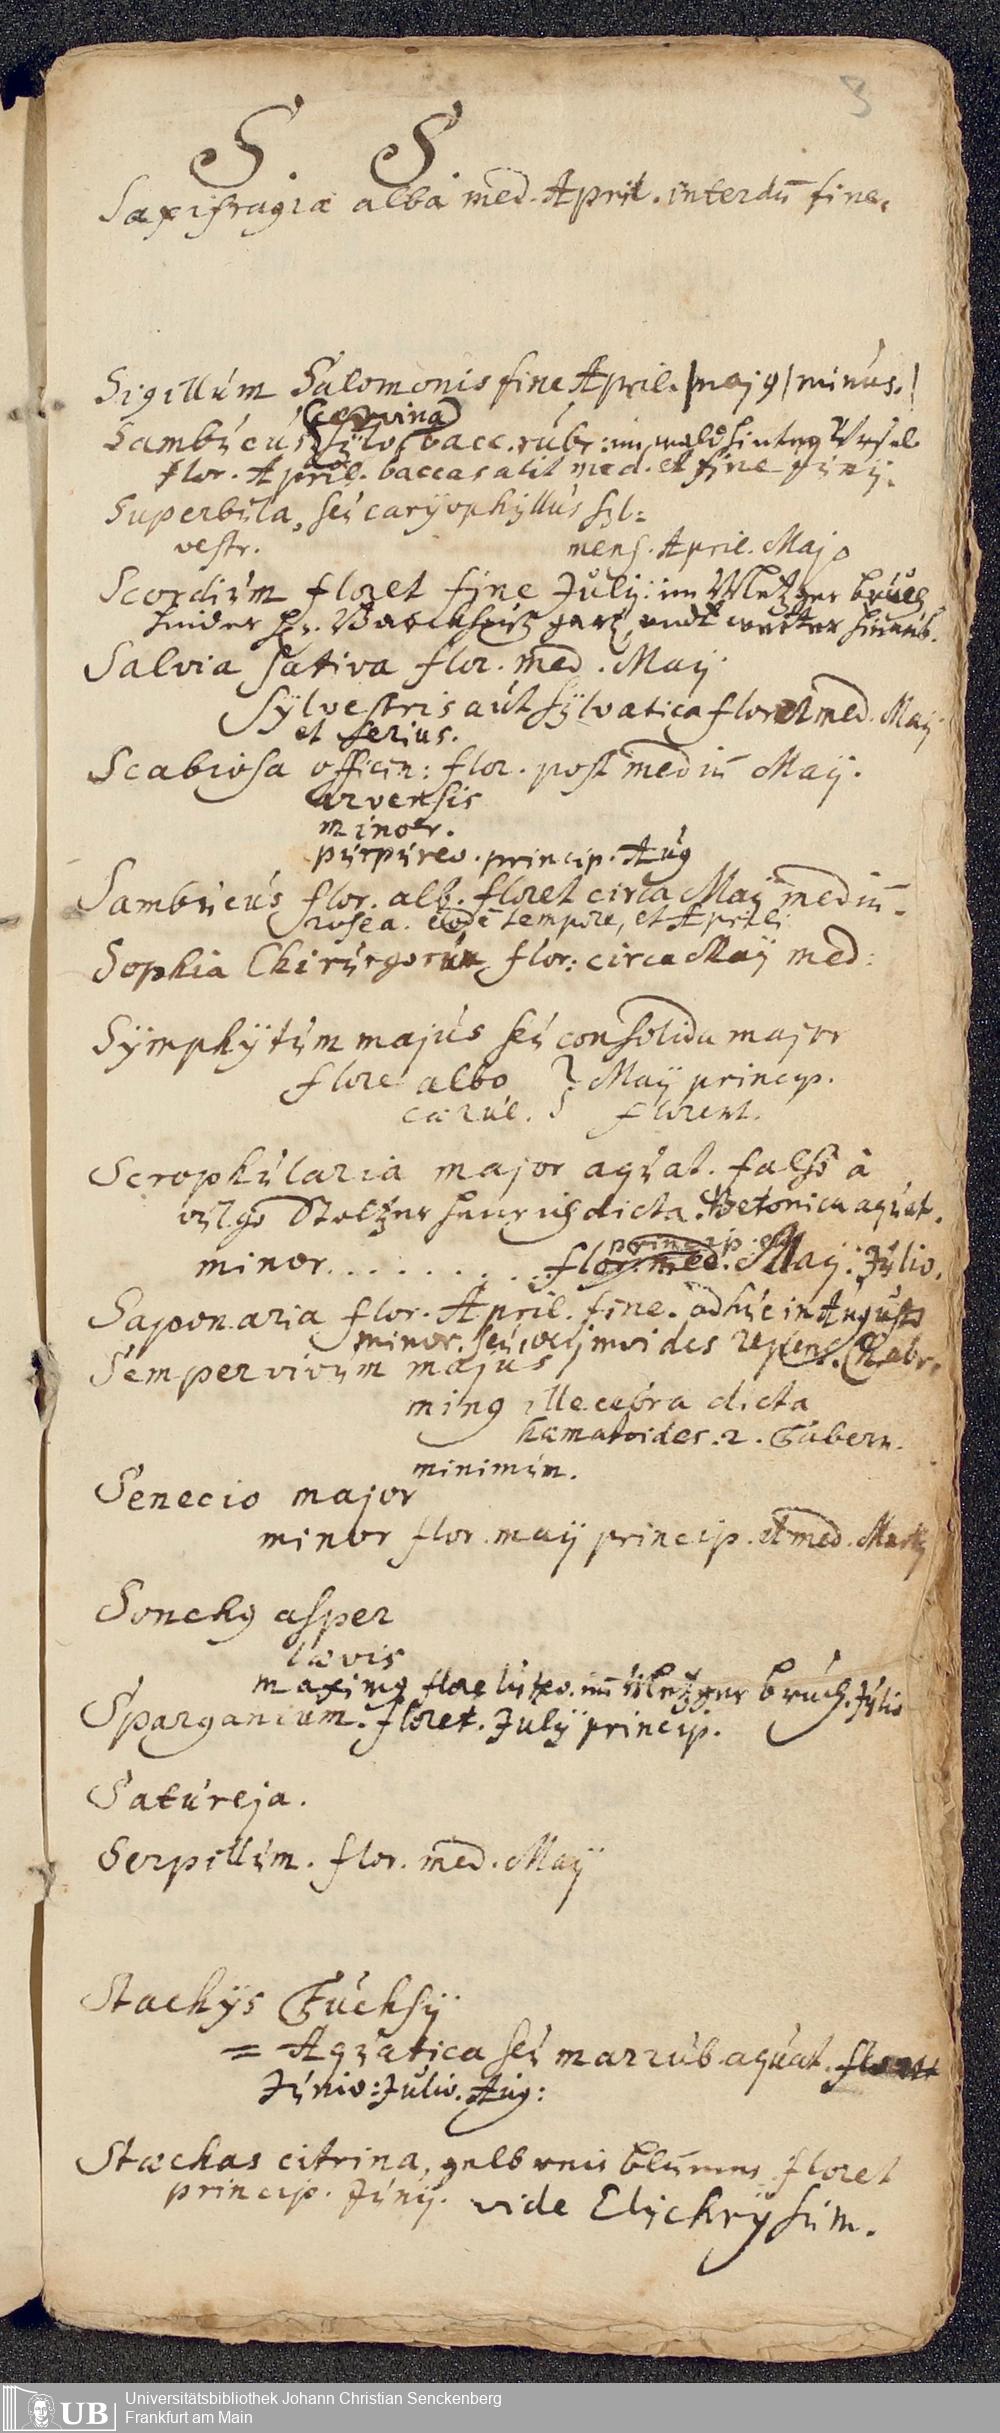 3
S S
Saxifragia alba med. April. interdū fine.
Sigillúm Salomonis fine April. | maj9 | minús. |
(cervina)
Sambúcús sylv. bacc. rúbr: im wald hinter Ursel
flor. April. baccas alit med. et fine Júny.
Superbúla, seú caryophyllús syl=
vestr. mens. April. Majo
Scordiúm floret fine Júlÿ: im Metzger brúch
hinder Hr. gart, undt weitter hinaúb.
Salvia sativa flor. med. Maÿ
Sÿlvestris aút sÿlvatica floret med. Maÿ
et serius.
Scabiosa officin: flor. post mediū Maÿ.
arvensis
minor.
púrpúreo. princip. Aúg
Sambúcús flor. alb. floret circa Maÿ mediū.
rosea. eodē tempore, et Aprili
Sophia Chirúrgorúm flor: circa Maÿ med:
Sÿmphÿtúm majús seú consolida major
flore albo } Maÿ princip.
cærúl. } florent.
Scrophúlaria major aqúat. falsò à
vúlgo dicta Betonica aqúat.
princip. et
minor . . . . . . . . . flor. med. Maÿ: Júlio.
Saponaria flor. April. fine. adhúc in Aúgústo
minor. seú ocijmoides repens. Chabr.
Sempervivúm majús
min9 illecebra dicta
hæmatoides. 2. Tabern.
minimúm.
Senecio major
minor flor. maÿ princip. et med. Martÿ
Sonch9 asper
lævis
maxim9 flore lúteo. im Metzger brúch. Júlio
Sparganium. floret. Júlÿ princip.
Satúreja.
Serpillúm. flor. med. Maÿ
Stachÿs Fúchsÿ
= Aqúatica seú marrúb aqúat. floret
Júnio: Júlio. Aúg:
Stœchas citrina, gelb blúmen floret
princip. Júnÿ. vide Elÿchrÿsúm.
Universitätsbibliothek Johann Christian Senckenberg
UB
Frankfurt am Main